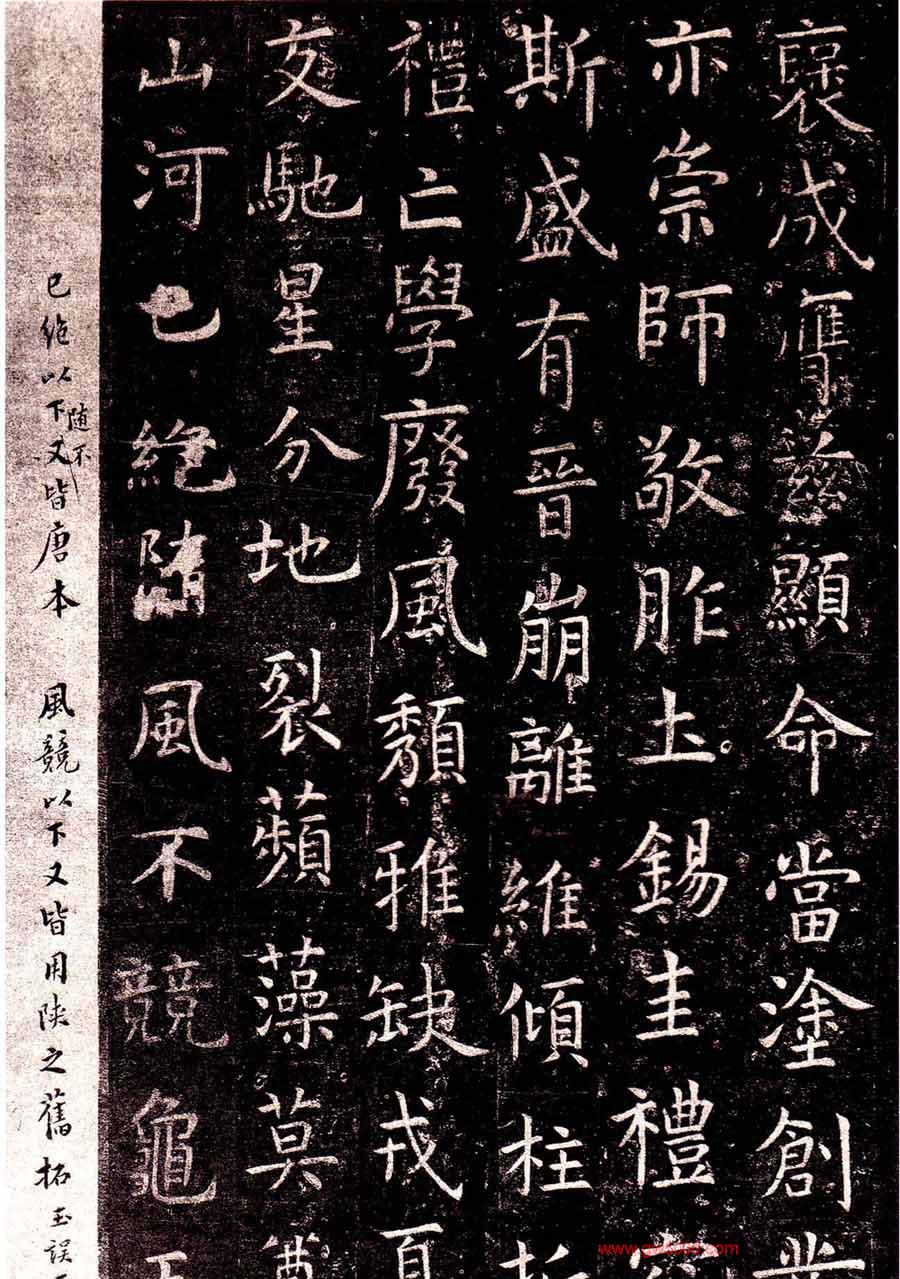 褒成膺茲顯命當塗創業
亦崇師敬胙土錫圭禮容
斯盛有晉崩離維傾柱折
禮亡學廢風頹雅缺戎夏
交馳星分地裂蘋藻莫奠
山河已絕隨風不競龜玉
已絶以下又皆唐本 風競以下又皆用陕之舊拓玉誤
随不
www.